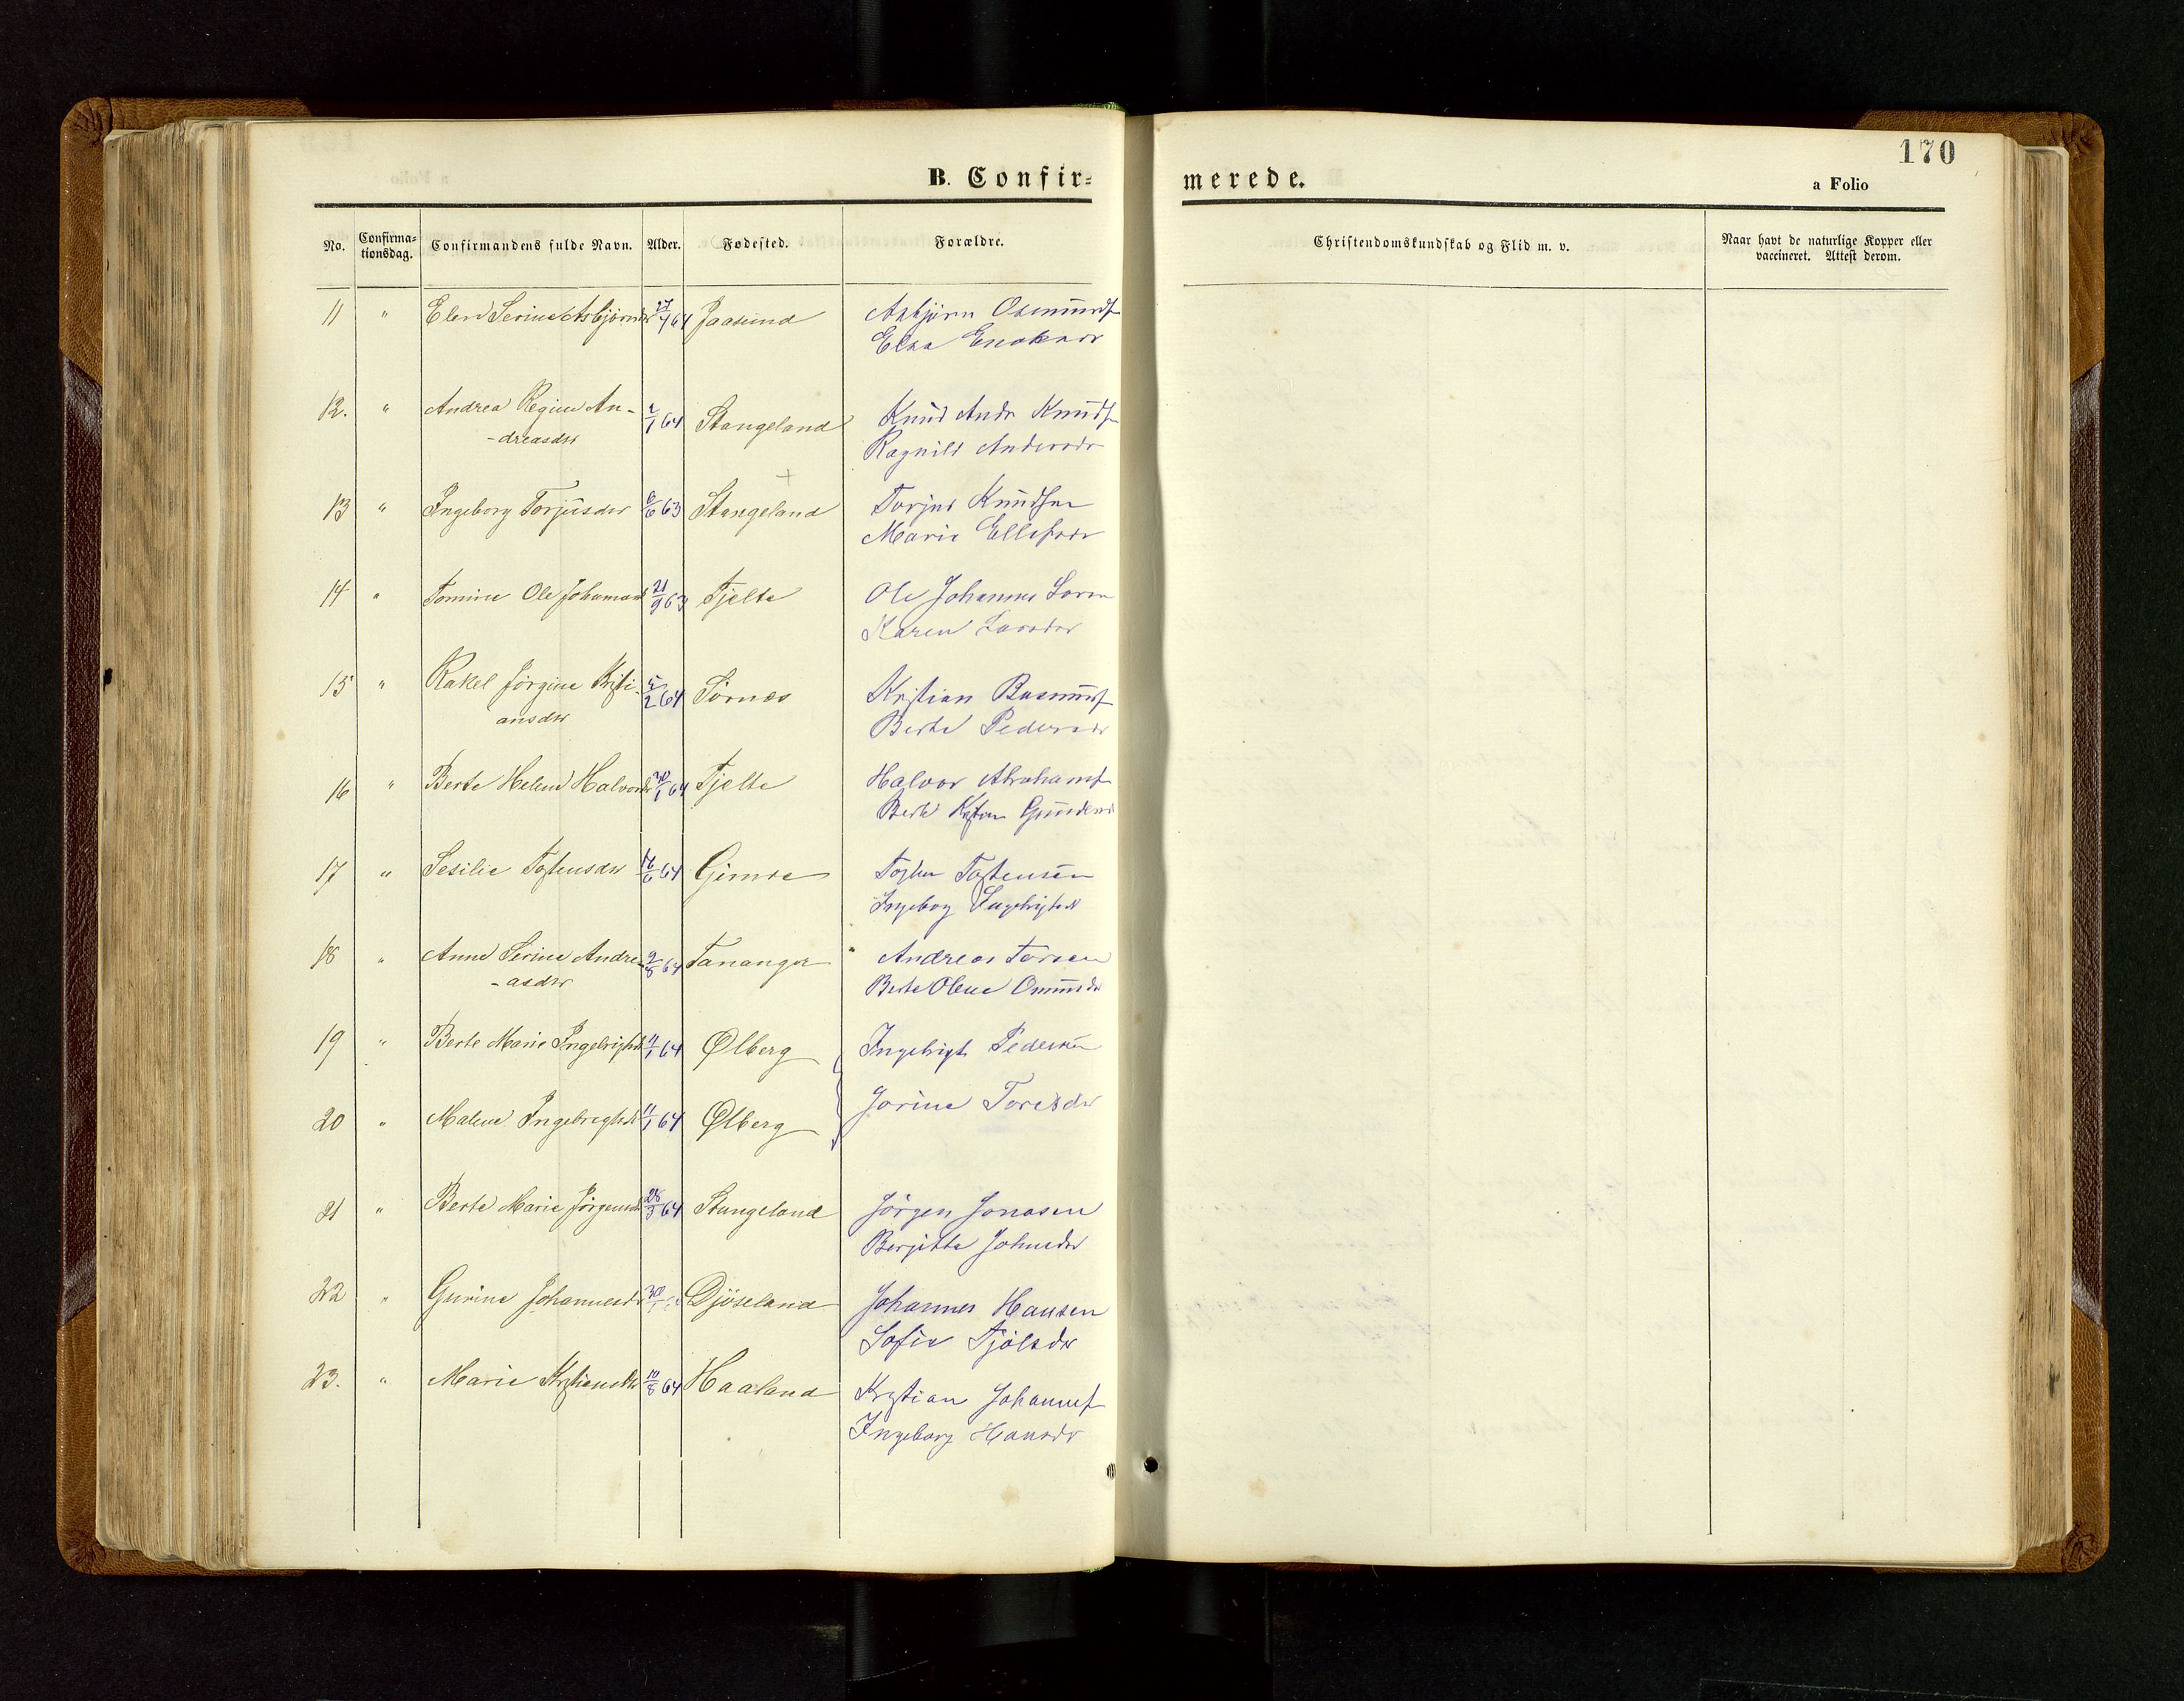 170
B. Confir=
merede.
a Folio
No.
Confirma=
tionsdag.
Confirmandens fulde Navn.
Alder.
Fødested.
Forældre.
Christendomskundskab og Flid m. v.
Naar havt de naturlige Kopper eller
vaccineret. Attest derom.
11 " Elen Serine Asbjørnsdr 64 Jaasund Asbjørn Osmundsn
Elsa Enoksdr
12. " Andrea Regine An- 1/1 64 Stangeland Knud Andr Knudsn
-dreasdtr Ragnild Andersdr
13 " Ingeborg Torjusdtr 6/6 63 Stangeland Torjus Knudsen
Marie Ellefsdr
14 " Tomine Ole Johannesd 21/9 63 Tjelte Ole Johannes
Karen Larsdtr
15 " Rakel Jørgine Kristi- 5/2 64 Sørnes Kristian Rasmusn
ansdtr Berte Pedersdr
16 " Berte Helene Halvorsdr 30/1 64 Tjelte Halvor Abrahamsn
Berte Gundersd
17 " Sesilie Tostensdtr 16/6 64 Gimre Tosten Tostensen
Ingeborg Ingebrigtsd
18 " Anne Serine Andre- 9/8 64 Tananger Andreas Torsen
-asdtr Berte Olene Omundsdr
19 " Berte Marie Ingebrigtsd 11/1 64 Ølberg Ingebrigt Pedersen
20 " Malene Ingebregtsd 11/1 64 Ølberg Jorine Toresdtr
21 " Berte Marie Jørgensd 28/3 64 Stangeland Jörgen Jonasen
Berjitta Johnsdtr
22 " Gurine Johannesdr 30/ Djöseland Johannes Hansen
Sofie Tjölsdtr
23. " Marie Kristiansdtr 10/8 64 Haaland Kristian Johannesn
Ingeborg Hansdr